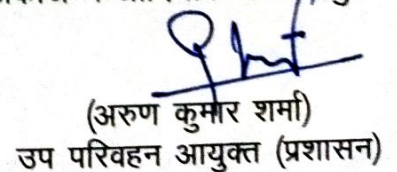 (अरुण कुमार शर्मा)
उप परिवहन आयुक्त (प्रशासन)